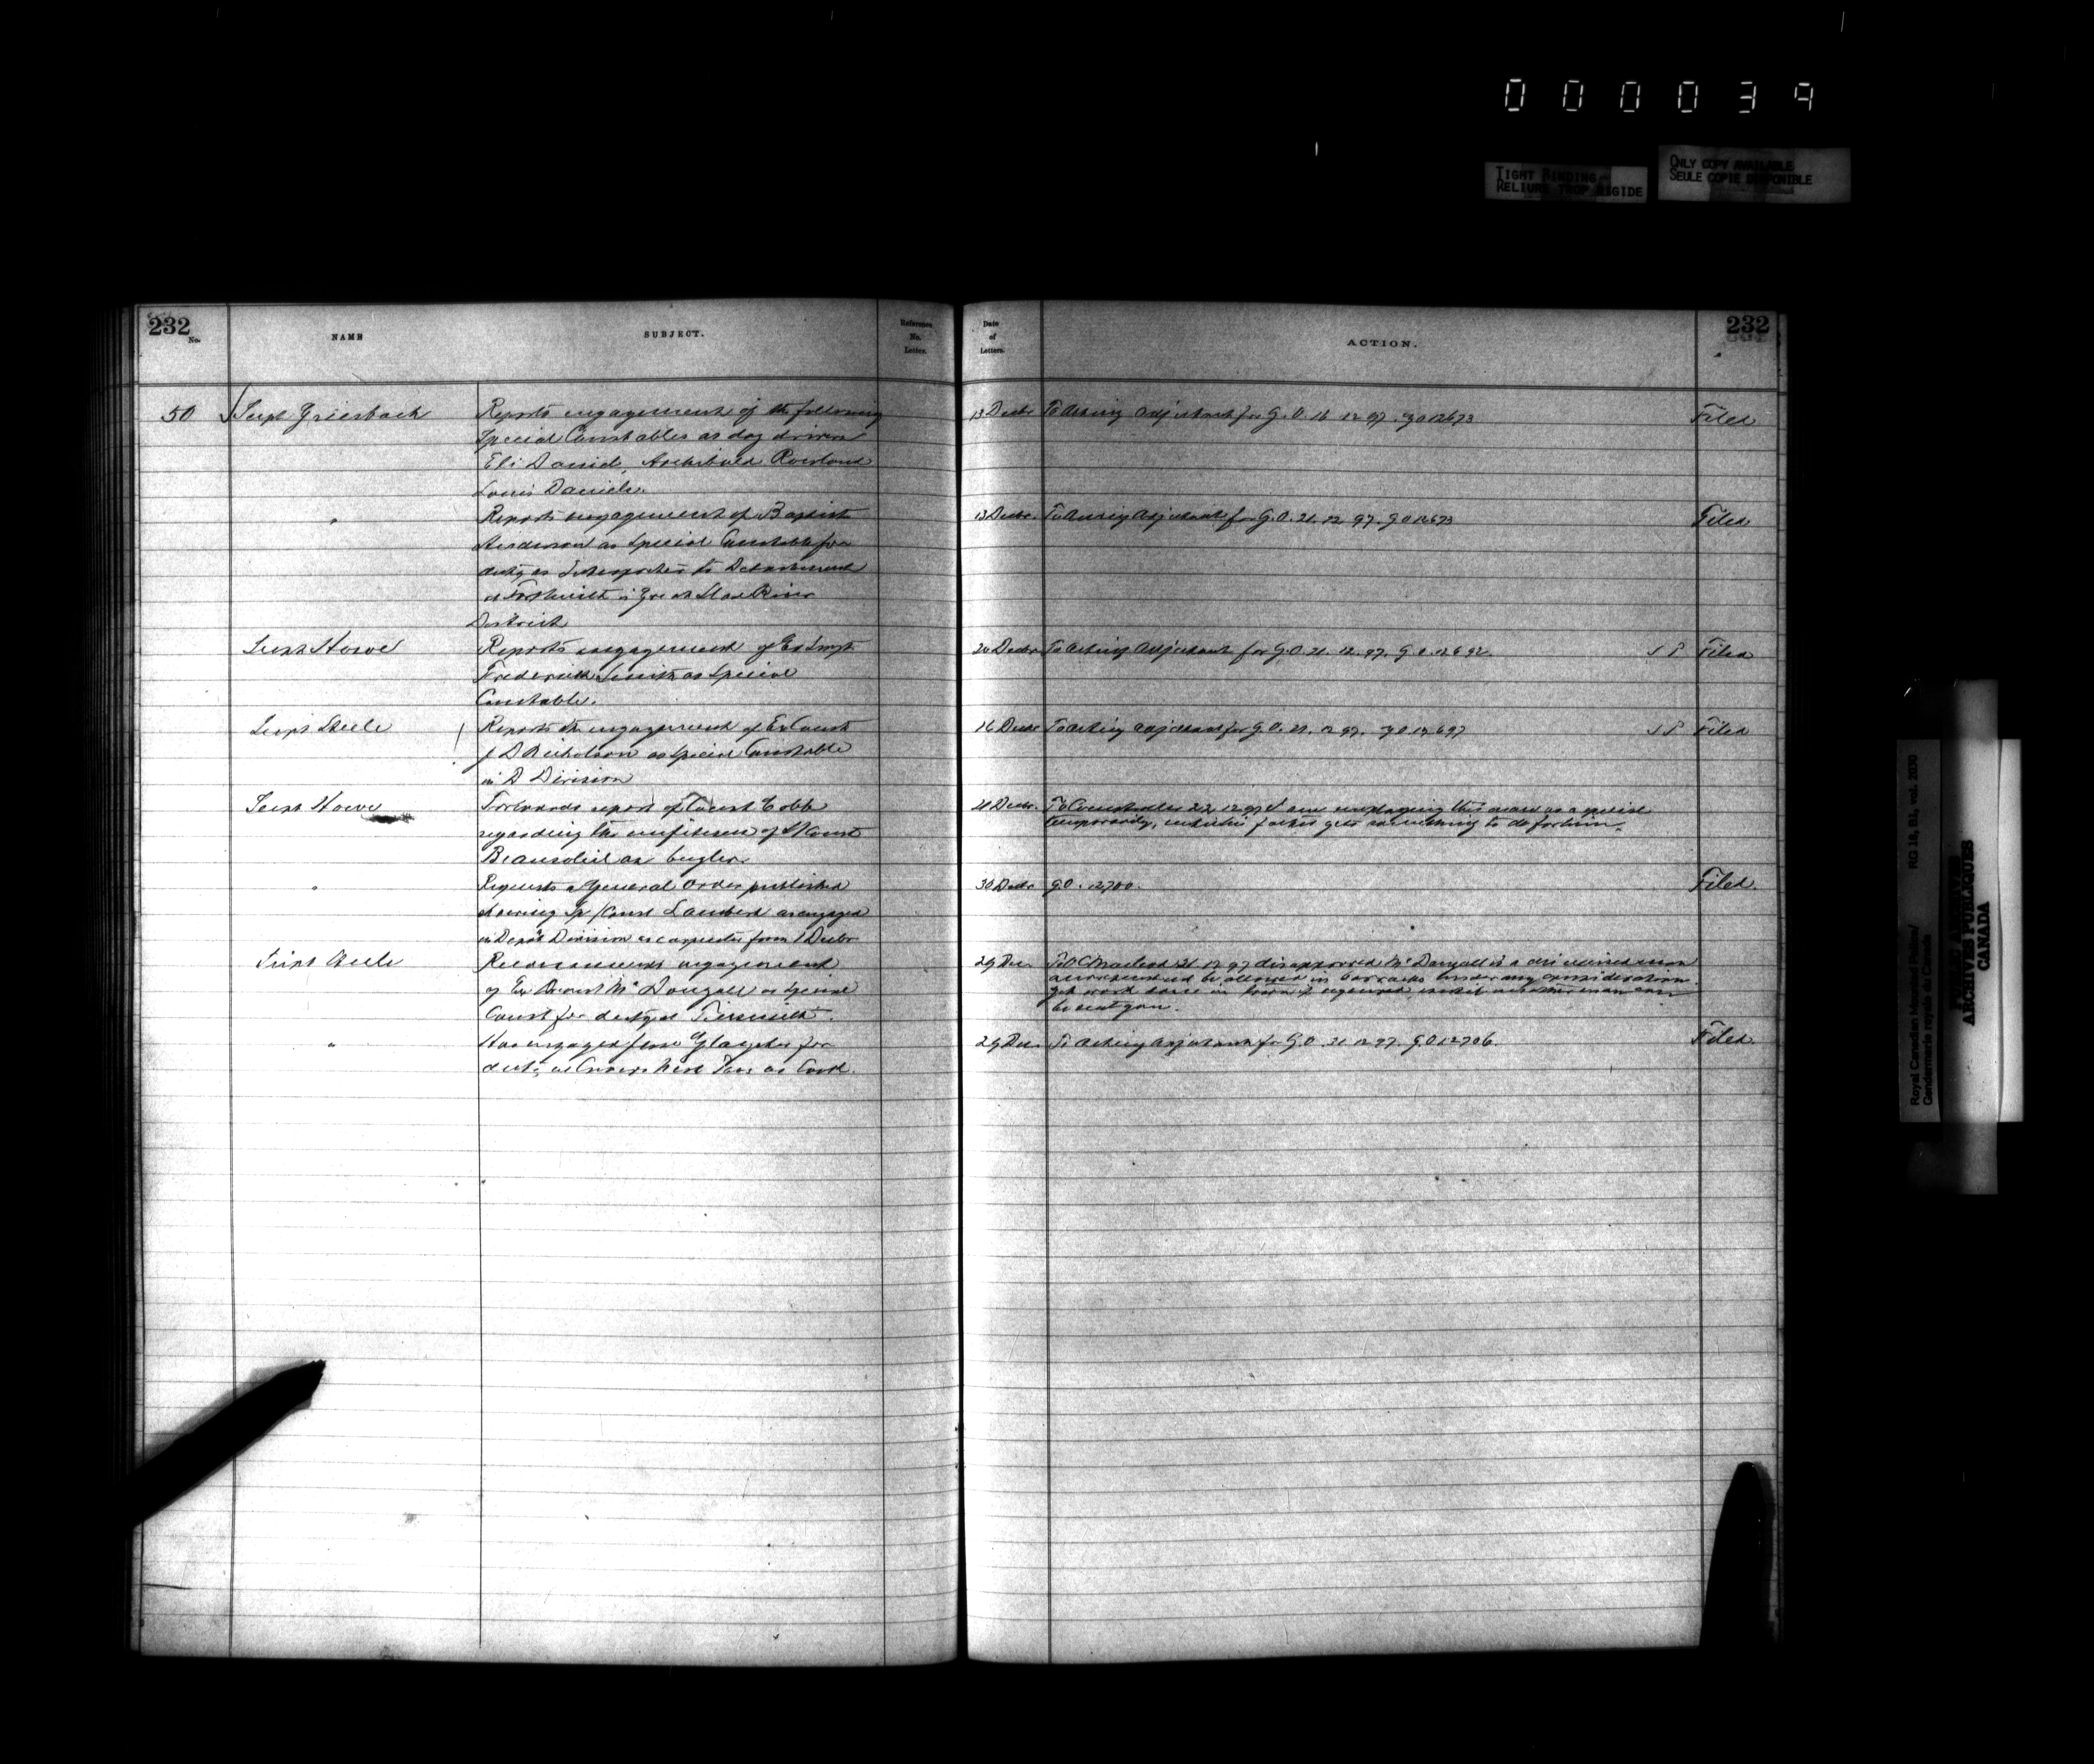 000039
TIGHT BINDING
RELIURE TROP RIGIDE
ONLY COPY AVAILABLE
SEULE COPIE DISPONIBLE
232
No.
NAME
SUBJECT.
Reference
No.
Letter.
Date
of
Letters.
ACTION.
232
50 Supt Griesbach
Reports engagement of the following
Special Constables as dog drivers
Eli Daniel, Archibald Rowland
Louis Daniels.
13 Decbr To Acting Adjutant for G.O. 16 12 97. G O 12673
Filed
"
Reports engagement of Baptist
Anderson as Special Constable for
duty as Interpreter to Detachment
at Fort Smith in Great Slave River
District
13 Decbr. To Acting Adjutant for G.O. 21. 12 97. G O 12673
Filed
Supt Howe
Reports engagement of Ex
Frederick Smith as Special
Constable.
20 Decbr To Acting Adjutant for G.O. 21. 12. 97. G. O. 12692.
S P Filed
Supt Steele
Reports the engagement of Ex Const
J D Nicholson as Special Constable
in D Division
16 Decbr To Acting Adjutant for G.O. 21. 12 97. G O 12697
S P Filed
Supt Howe
Forwards report of Const Cobb
regarding the unfitness of S/Const
Beausoliel as bugler.
21 Decbr. 22. 12. 97 I am employing this man as a special
temporarily, until his father gets something to do for him.
"
Requests a General Order published
showing Sp/Const Lambert as engaged
in Depot Division as carpenter from 1 Decbr
30 Decbr G.O. 12700.
Filed.
Supt Steele
Recommends engagement
of Ex Const McDougall as Special
Const for duty at
29 Dec. To Macleod 31. 12. 97 disapproved McDougall is a dismissed man
and must not be allowed in barracks under any consideration.
Get work done in town if required, until another man can
be sent you.
"
Has engaged Jesse Glayster for
duty at Crows Nest Pass as Cook.
29 Dec. To Acting Adjutant for G.O. 31 12 97. G.O 12706.
Filed.
Royal Canadian Mounted Police/
Gendarmerie royale du Canada
RG 18, B1, vol. 2030
PUBLIC ARCHIVES
ARCHIVES PUBLIQUES
CANADA